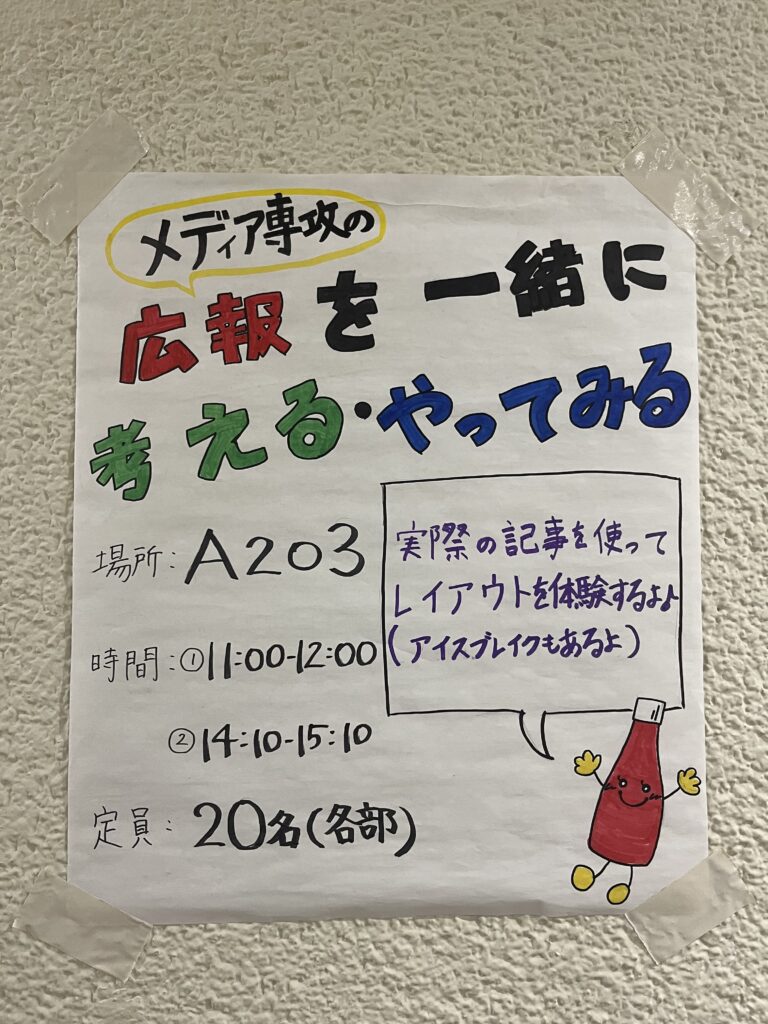 メディア専攻の
広報を一緒に
考える・やってみる
場所：A203
時間：①11:00-12:00
②14:10-15:10
定員：20名(各部)
実際の記事を使って
レイアウトを体験するよ♪
(アイスブレイクもあるよ)